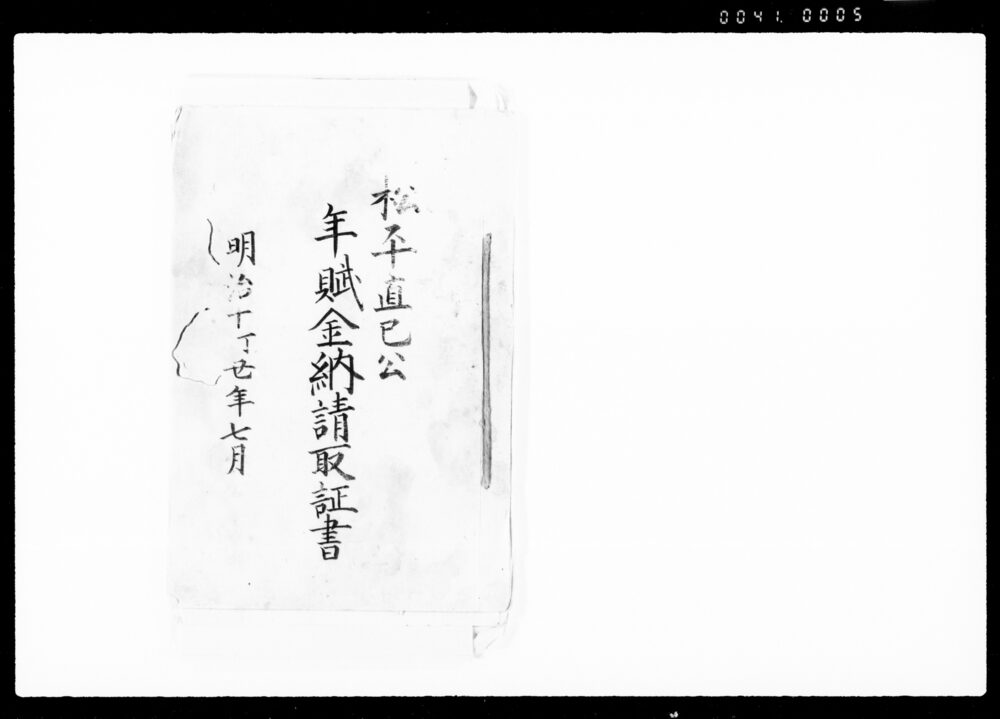 0041. 0005
松平直已公
年賦金納請取証書
明治十丁丑年七月